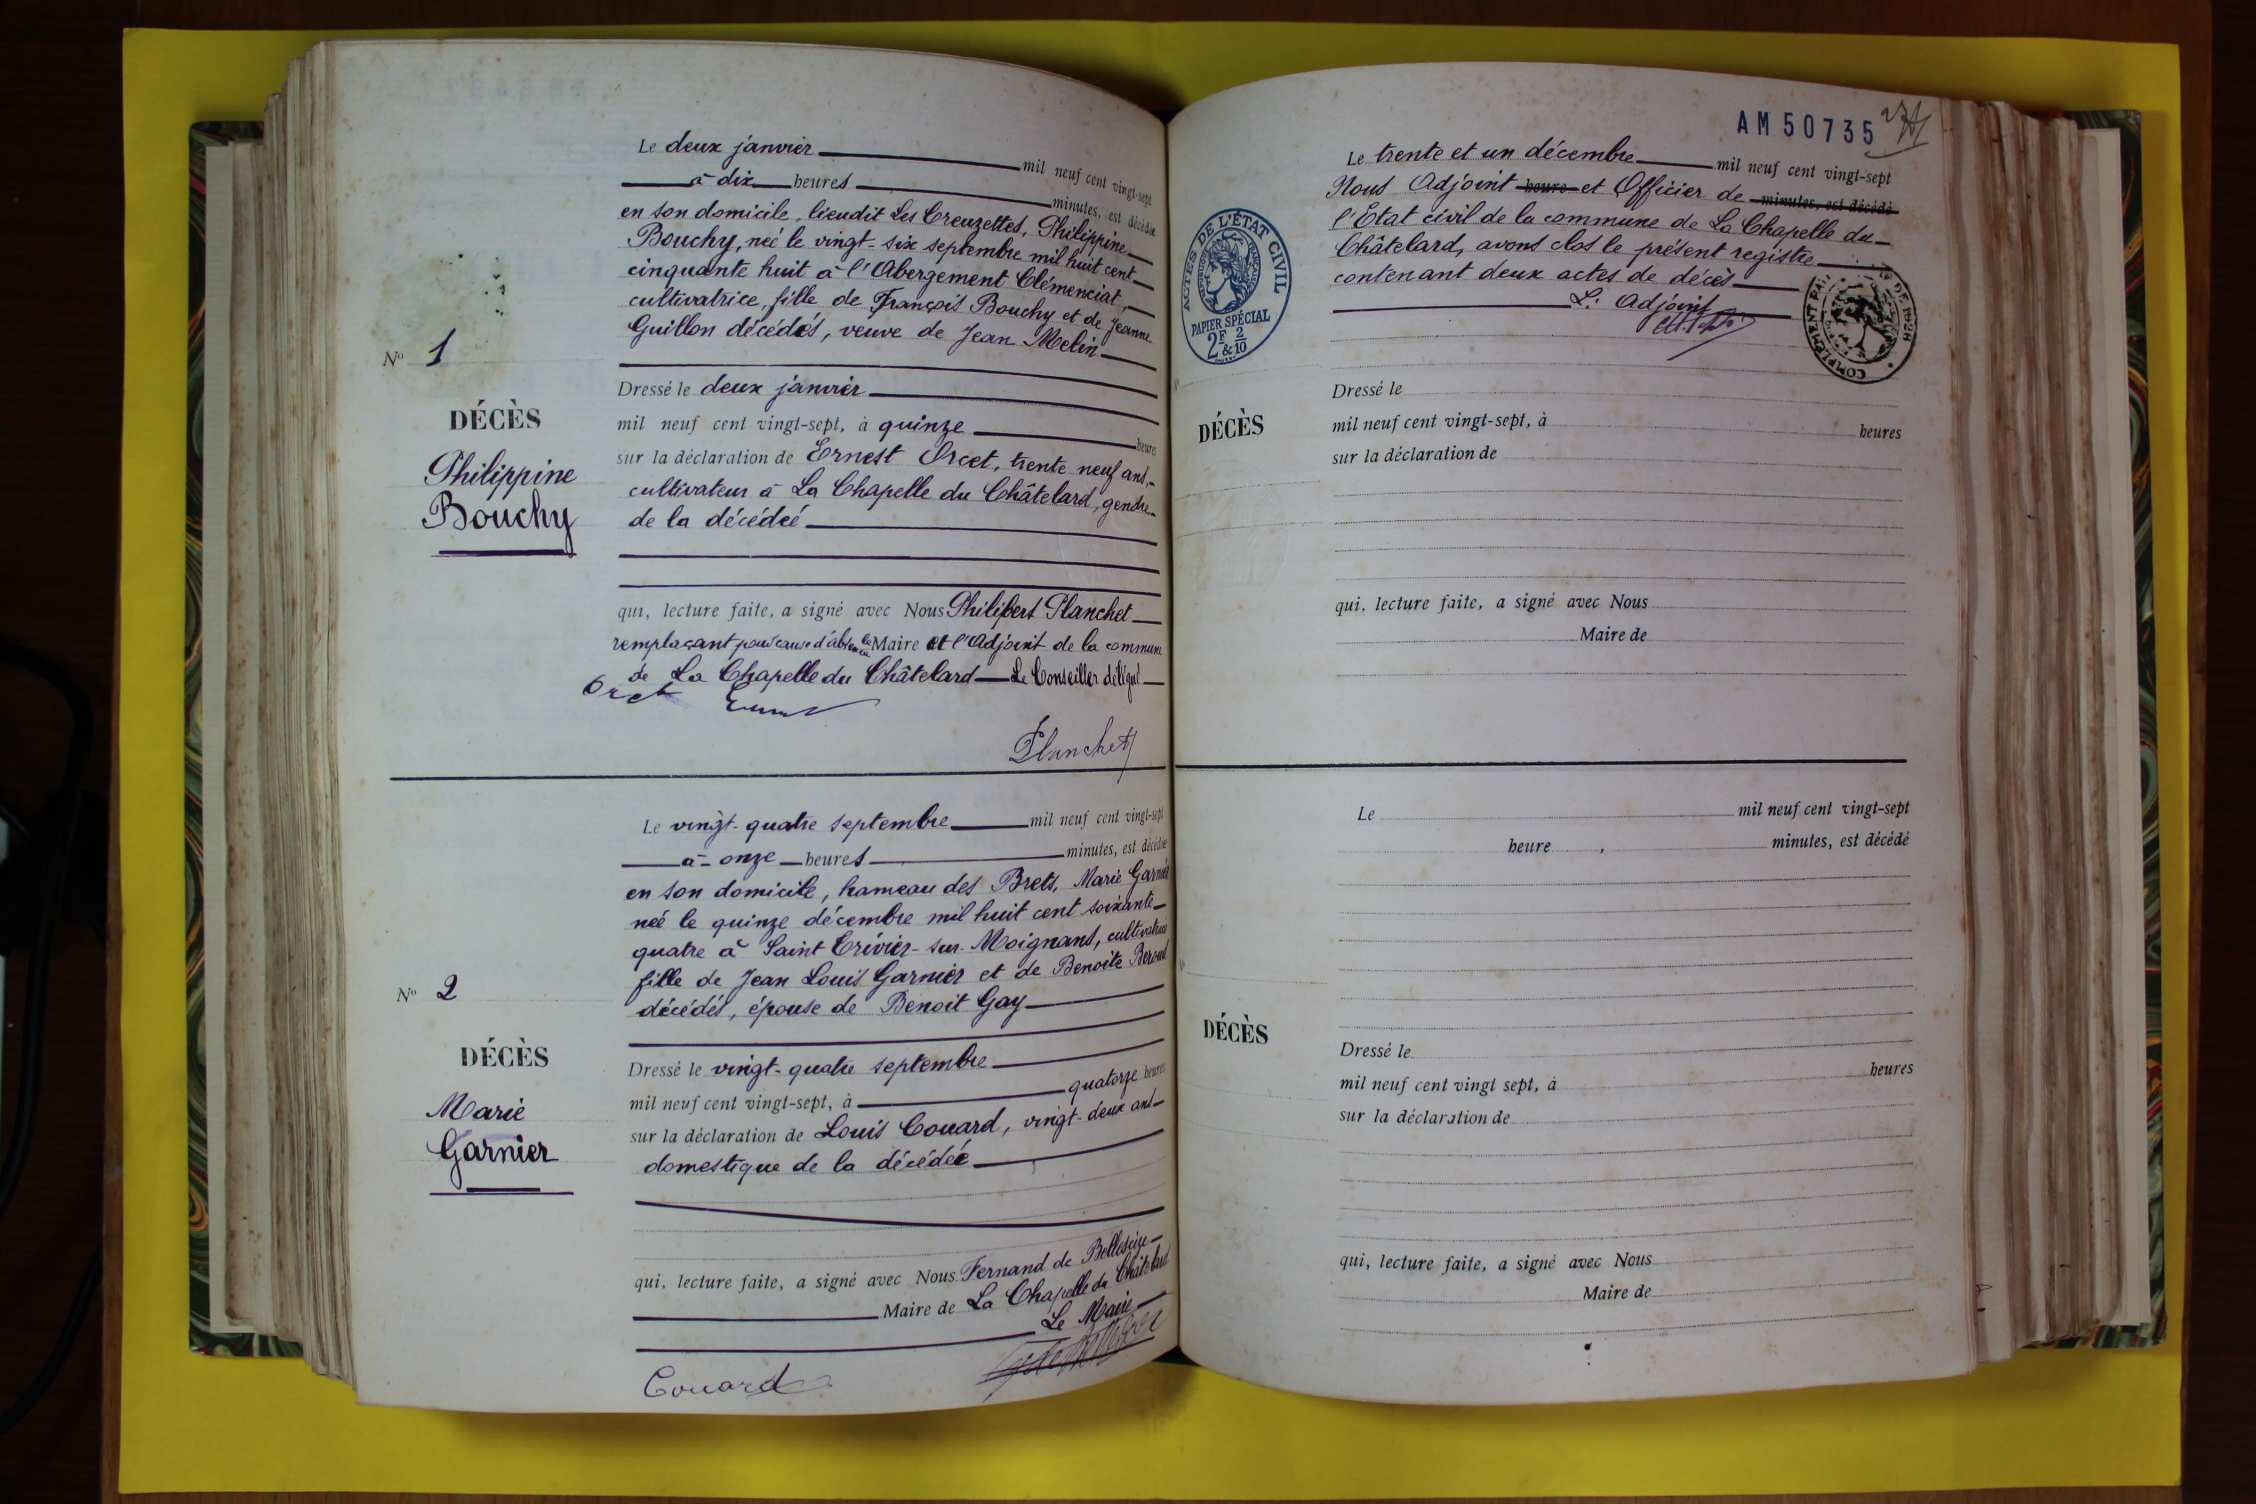 Le deux janvier mil neuf cent vingt-sept
à dix heures minutes, est décédée
en son domicile, lieudit Les Creuzettes, Philippine
Bouchy, neé le vingt-six septembre mil huit cent
cinquante huit à l'Abergement Clémenciat
cultivatrice, fille de François Bouchy et de Jeanne
Guillon décédés, veuve de Jean Melin
Nº 1
DÉCÈS
Philippine
Bouchy
Dressé le deux janvier
mil neuf cent vingt-sept, à quinze heures
sur la déclaration de Ernest Orcet, trente neuf ans,
cultivateur à La Chapelle du Châtelard, gendre
de la décédeé
qui, lecture faite, a signé avec Nous Philibert Planchet
remplaçant pour cause d'absence le Maire et l'Adjoint de la commune
de La Chapelle du Châtelard Le Conseiller délégué
Orcet Ernest
Planchet
Le vingt-quatre septembre mil neuf cent vingt-sept
à onze heures minutes, est décédée
en son domicile, hameau des Brets, Marie Garnier
neé le quinze décembre mil huit cent soixante
quatre à Saint Trivier-sur-Moignans, cultivatrice
fille de Jean Louis Garnier et de Benoite Beroud
décédés, épouse de Benoit Gay
Nº 2
DÉCÈS
Marie
Garnier
Dressé le vingt-quatre septembre
mil neuf cent vingt-sept, à quatorze heures
sur la déclaration de Louis Couard, vingt-deux ans
domestique de la décédée
qui, lecture faite, a signé avec Nous Fernand de Bellescize
Maire de La Chapelle du Châtelard
Le Maire
Couard
AM50735
Le trente et un décembre mil neuf cent vingt-sept
Nous Adjoint heure et Officier de minutes, est décédé
l'Etat civil de la commune de La Chapelle du
Châtelard, avons clos le présent registre
contenant deux actes de décès
L'Adjoint
ACTES DE L'ÉTAT CIVIL
PAPIER SPÉCIAL
2F & 2/10
COMPLÉMENT PAR DE 1926
DÉCÈS
Dressé le
mil neuf cent vingt-sept, à heures
sur la déclaration de
qui, lecture faite, a signé avec Nous
Maire de
Le mil neuf cent vingt-sept
heure , minutes, est décédé
DÉCÈS
Dressé le
mil neuf cent vingt sept, à heures
sur la déclaration de
qui, lecture faite, a signé avec Nous
Maire de